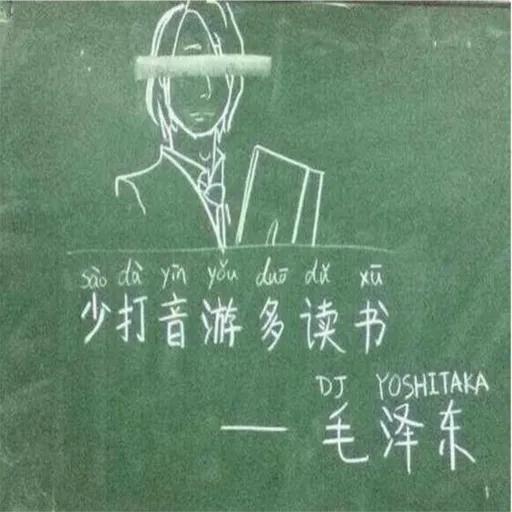 sào dà yīn yǒu duō dǔ xū
少打音游多读书
DJ YOSHITAKA
— 毛泽东